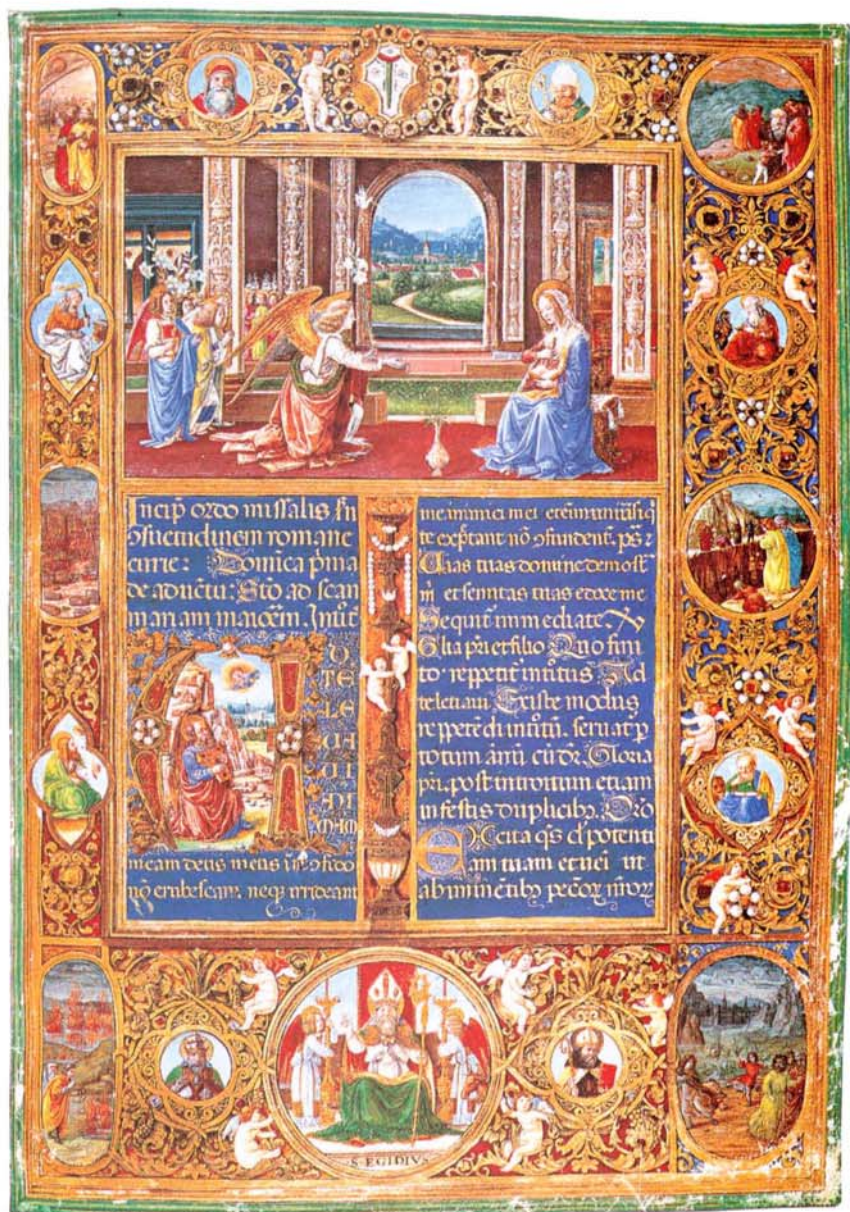 Incip ordo missalis sn
ɔsuetudinem romane
curie: Domica pma
de aduetu: Sto ad scan
mariam maiorem. Introit
A
D
TE LE
UA
UI
DI
MAM
meam deus meus in te ɔfido
no erubescam. neq irrideant
me inimici mei etenim uniusi q
te expectant no ɔfundent. ps
Uias tuas domine demost
m et semitas tuas edoce me
Sequit immediate
Glia pri et filio Quo fini
to reppetit introitus Ad
te leuaui Existe modus
reppetedi introitu. seruat p
totum annu cu dr. Gloria
pri. post introitum etiam
in festis duplicibus. Oro
Excita qs dne potenti
am tuam et ueni ut
ab iminetibus peccor nror
S · EGIDIVS